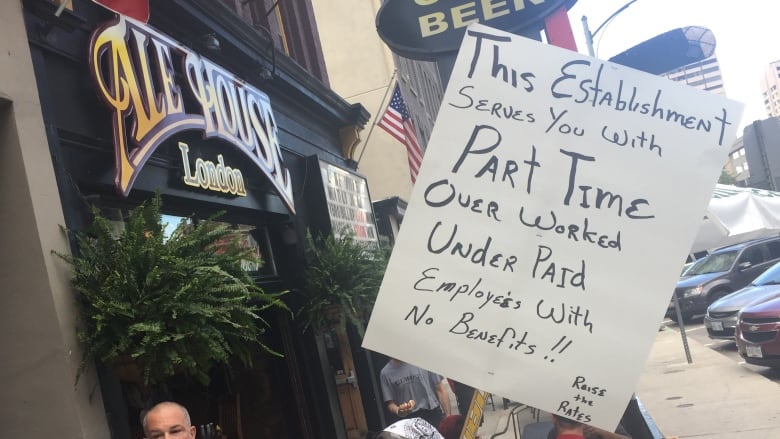 ALE HOUSE
London
BEEN
This Establishment
Serves You With
Part Time
Over Worked
Under Paid
Employees With
No Benefits!!
Raise
the
Rates